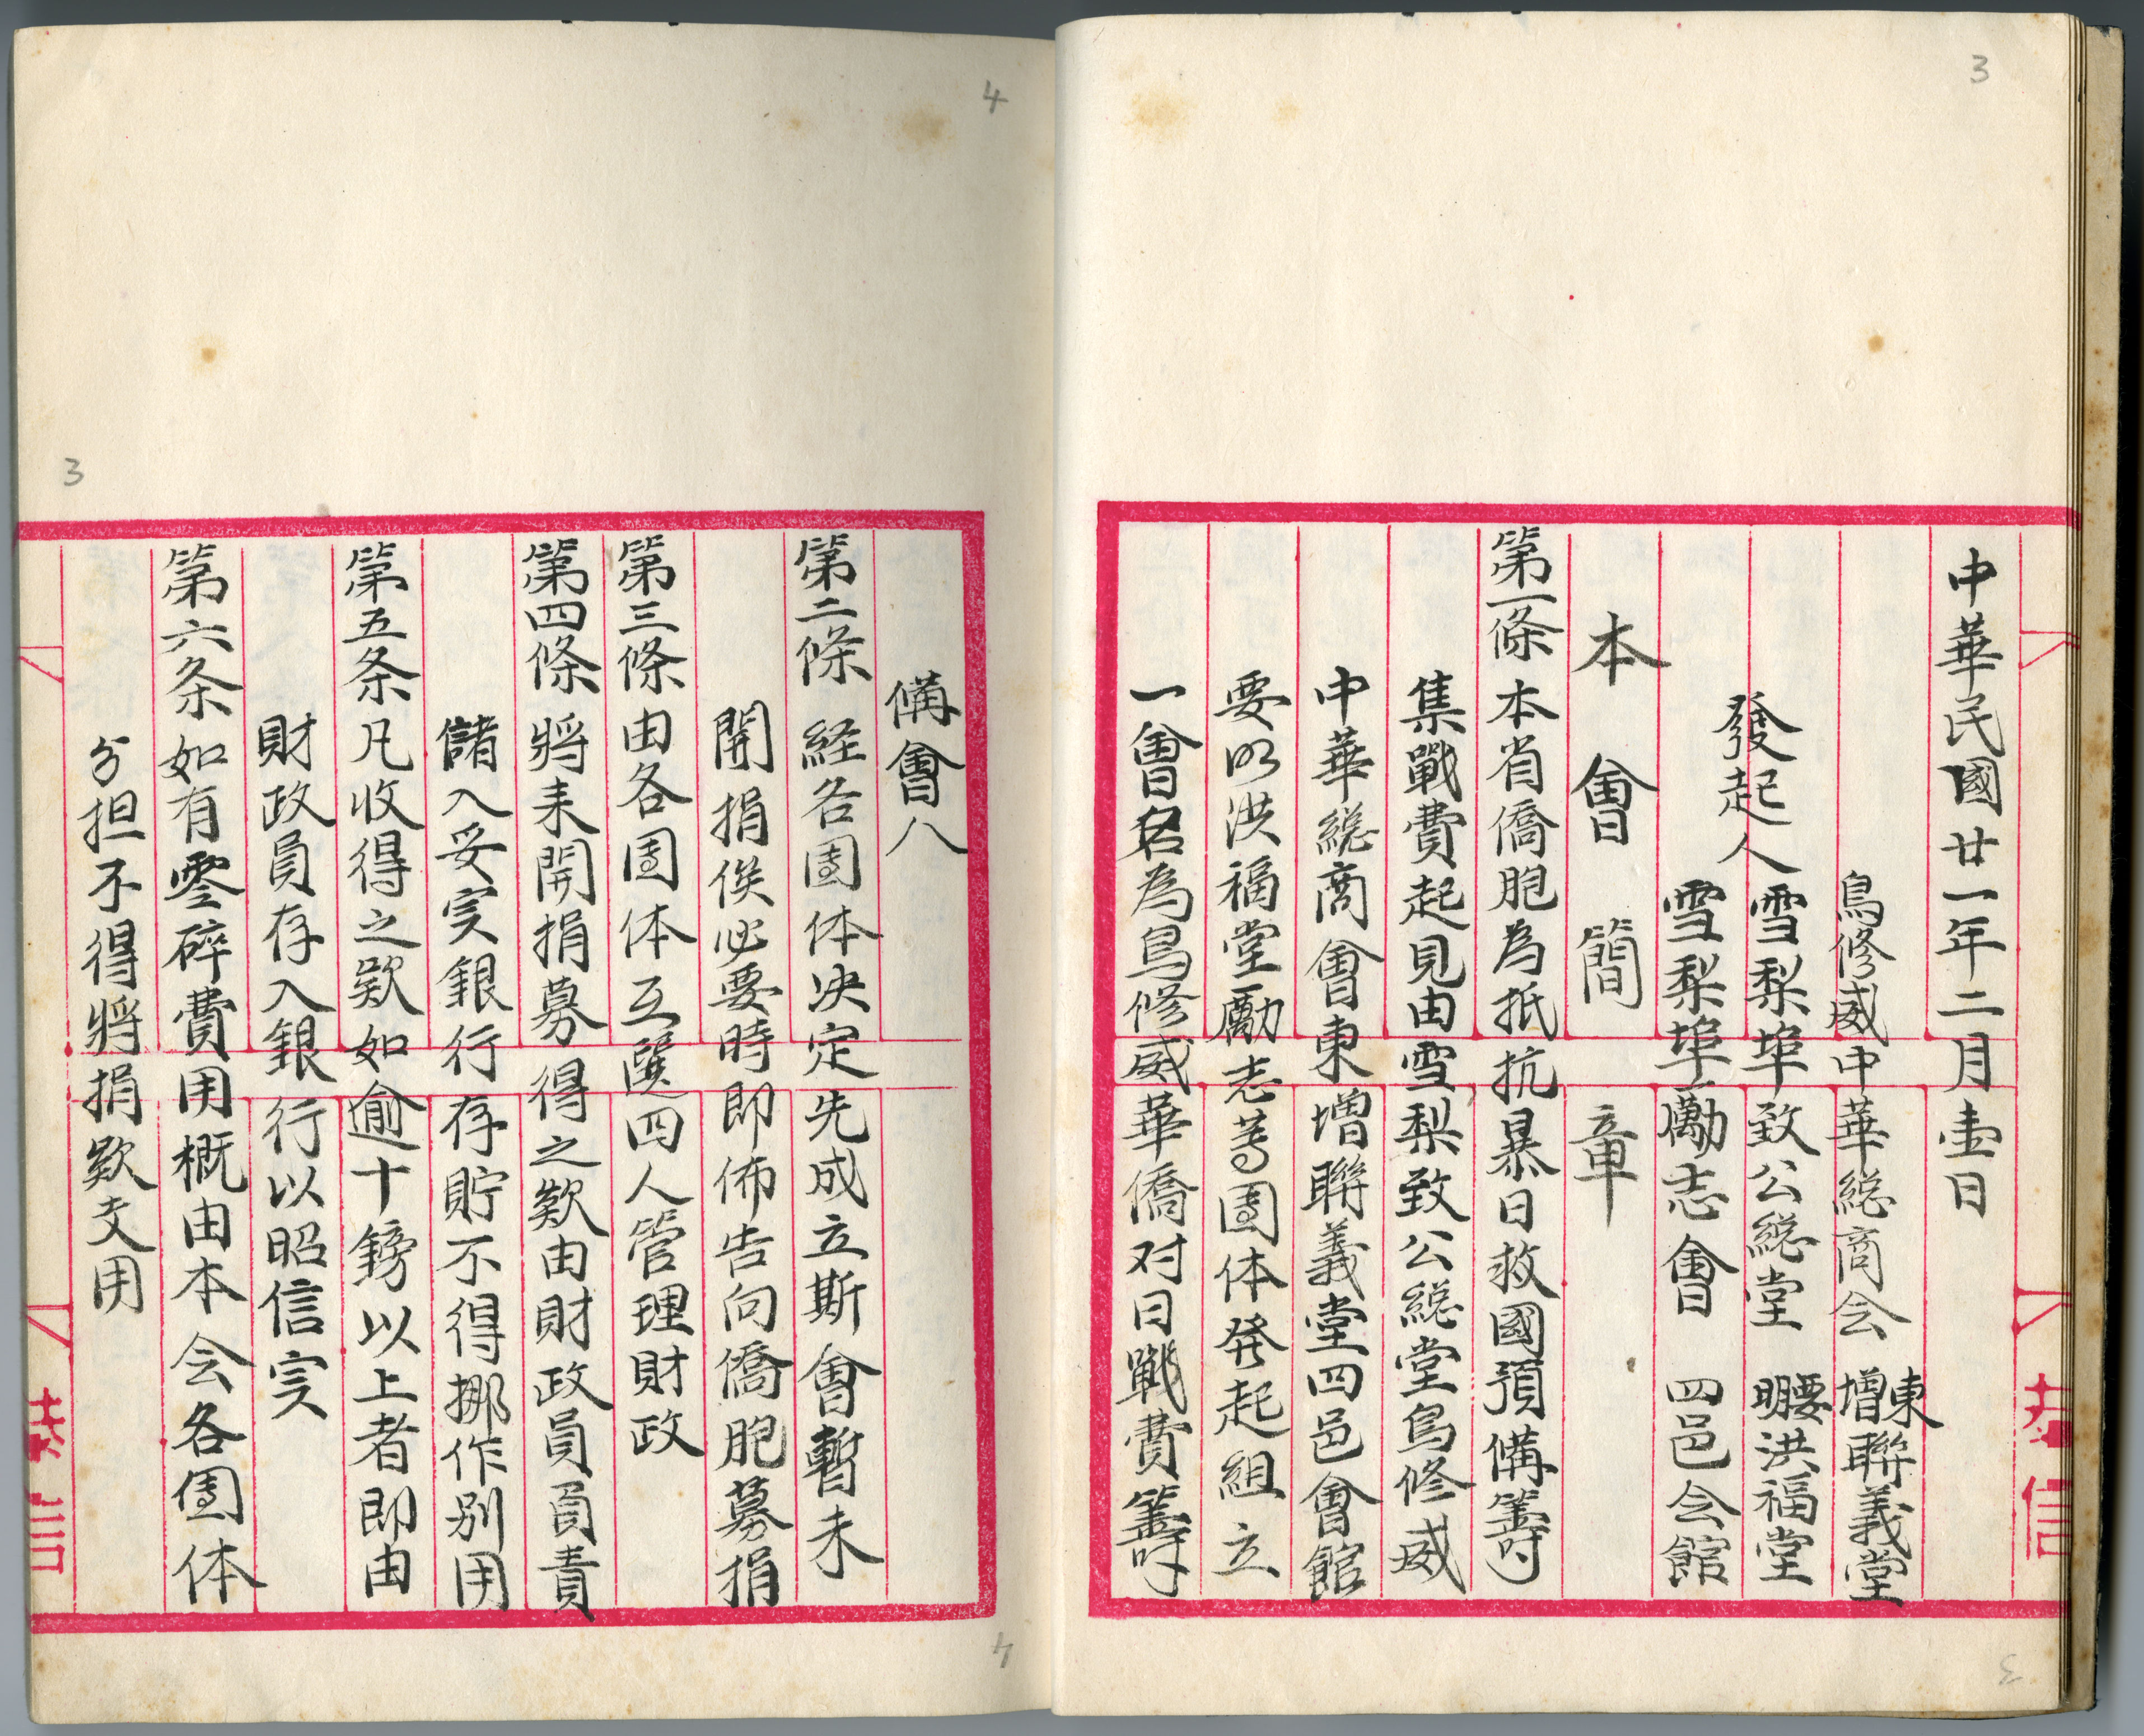 3
中華民國廿一年二月壹日
鳥修威中華総商会 東增聯義堂
發起人 雪梨埠致公総堂 要明洪福堂
雪梨埠勵志會 四邑会館
本會簡章
第一條 本省僑胞為抵抗暴日救國預備籌
集戰費起見由雪梨致公総堂鳥修威
中華総商會東增聯義堂四邑會館
要明洪福堂勵志等團体発起組立
一會名為鳥修威華僑对日戰費籌
4
備會八
第二條 経各團体決定先成立斯會暫未
開捐俟必要時即佈告向僑胞募捐
第三條由各團体互選四人管理財政
第四條將來開捐募得之欵由財政員員責
儲入妥实銀行存貯不得挪作别用
第五条凡收得之欵如逾十鎊以上者即由
財政員存入銀行以昭信实
第六条如有零碎費用概由本会各團体
分担不得將捐欵支用
3
信